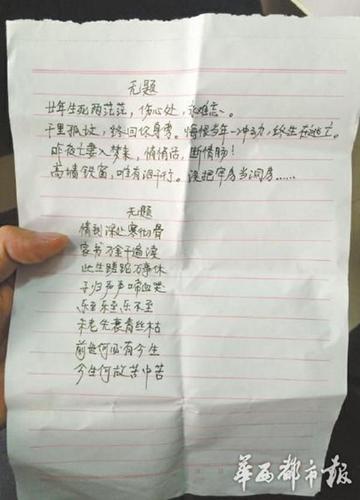 无题
廿年生死两茫茫，伤心处，最难忘。
千里孤坟，终回你身旁。悔恨当年一冲动，终生在逃亡。
昨夜亡妻入梦来，悄悄话，断情肠！
高墙铁窗，唯有泪千行。误把牢房当洞房……
无题
情到深处寒彻骨
家书万金千遍读
此生蹉跎万事休
子归声声啼血哭
乐至乐至乐不至
未老先衰青丝枯
前世何必有今生
今生何故苦中苦
华西都市报